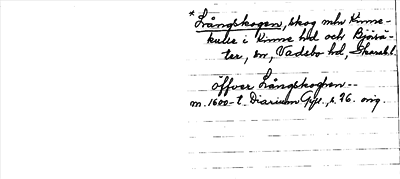 *Långskogen, skog mln Kinne-
kulle i Kinne hd och Björsä-
ter, sn, Vadsbo hd, Skarab. l.
öffver Långskoghen --
m. 1600-t. Diarium Gyll., s. 76. orig.